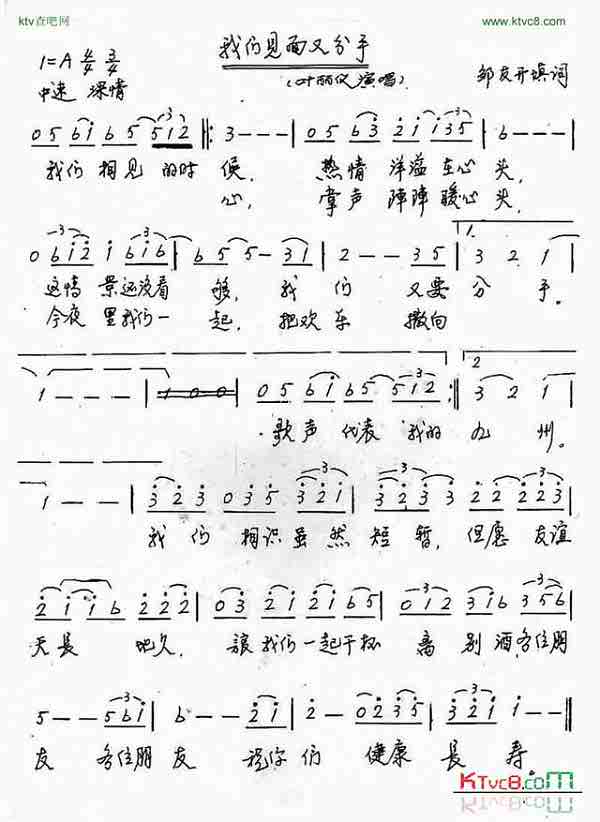 ktv查吧网
www.ktvc8.com
我们见面又分手
1=A 4/4 3/4
(叶丽仪演唱)
邹友开填词
中速 深情
我们相见的时候, 热情洋溢在心头,
心, 掌声陣陣暖心头,
这情景还没看够, 我们又要分手。
今夜里我们一起, 把欢乐撒向
歌声代表我的九州。
我们相识虽然短暂, 但愿友谊
天長地久, 讓我们一起干杯离别酒,各位朋
友各位朋友祝你们健康長寿。
KTvc8.com